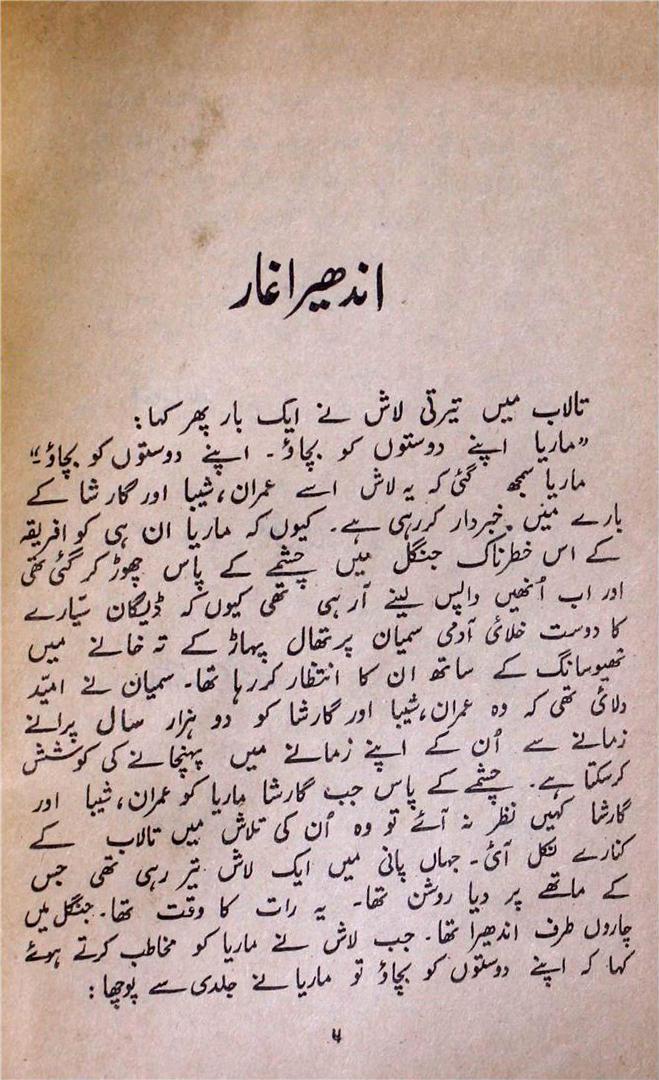 اندھیرا غار
تالاب میں تیرتی لاش نے ایک بار پھر کہا:
”ماریا اپنے دوستوں کو بچاؤ۔ اپنے دوستوں کو بچاؤ۔“
ماریا سمجھ گئی کہ یہ لاش اسے عمران، شیبا اور گارشا کے
بارے میں خبردار کر رہی ہے۔ کیوں کہ ماریا ان ہی کو افریقہ
کے اس خطرناک جنگل میں چشمے کے پاس چھوڑ کر گئی تھی
اور اب اُنھیں واپس لینے آ رہی تھی کیوں کہ ڈیگان سیّارے
کا دوست خلائی آدمی سمیان پرتھال پہاڑ کے تہ خانے میں
تھیوسانگ کے ساتھ ان کا انتظار کر رہا تھا۔ سمیان نے امیّد
دلائی تھی کہ وہ عمران، شیبا اور گارشا کو دو ہزار سال پرانے
زمانے سے اُن کے اپنے زمانے میں پہنچانے کی کوشش
کر سکتا ہے۔ چشمے کے پاس جب گارشا ماریا کو عمران، شیبا اور
گارشا کہیں نظر نہ آئے تو وہ اُن کی تلاش میں تالاب کے
کنارے نکل آئی۔ جہاں پانی میں ایک لاش تیر رہی تھی جس
کے ماتھے پر دیا روشن تھا۔ یہ رات کا وقت تھا۔ جنگل میں
چاروں طرف اندھیرا تھا۔ جب لاش نے ماریا کو مخاطب کرتے ہوئے
کہا کہ اپنے دوستوں کو بچاؤ تو ماریا نے جلدی سے پوچھا:
۵